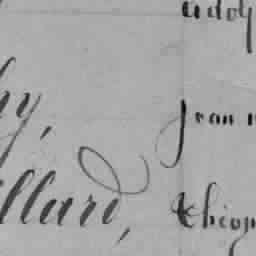 adolp
hy,
Jean
llard,
Théop